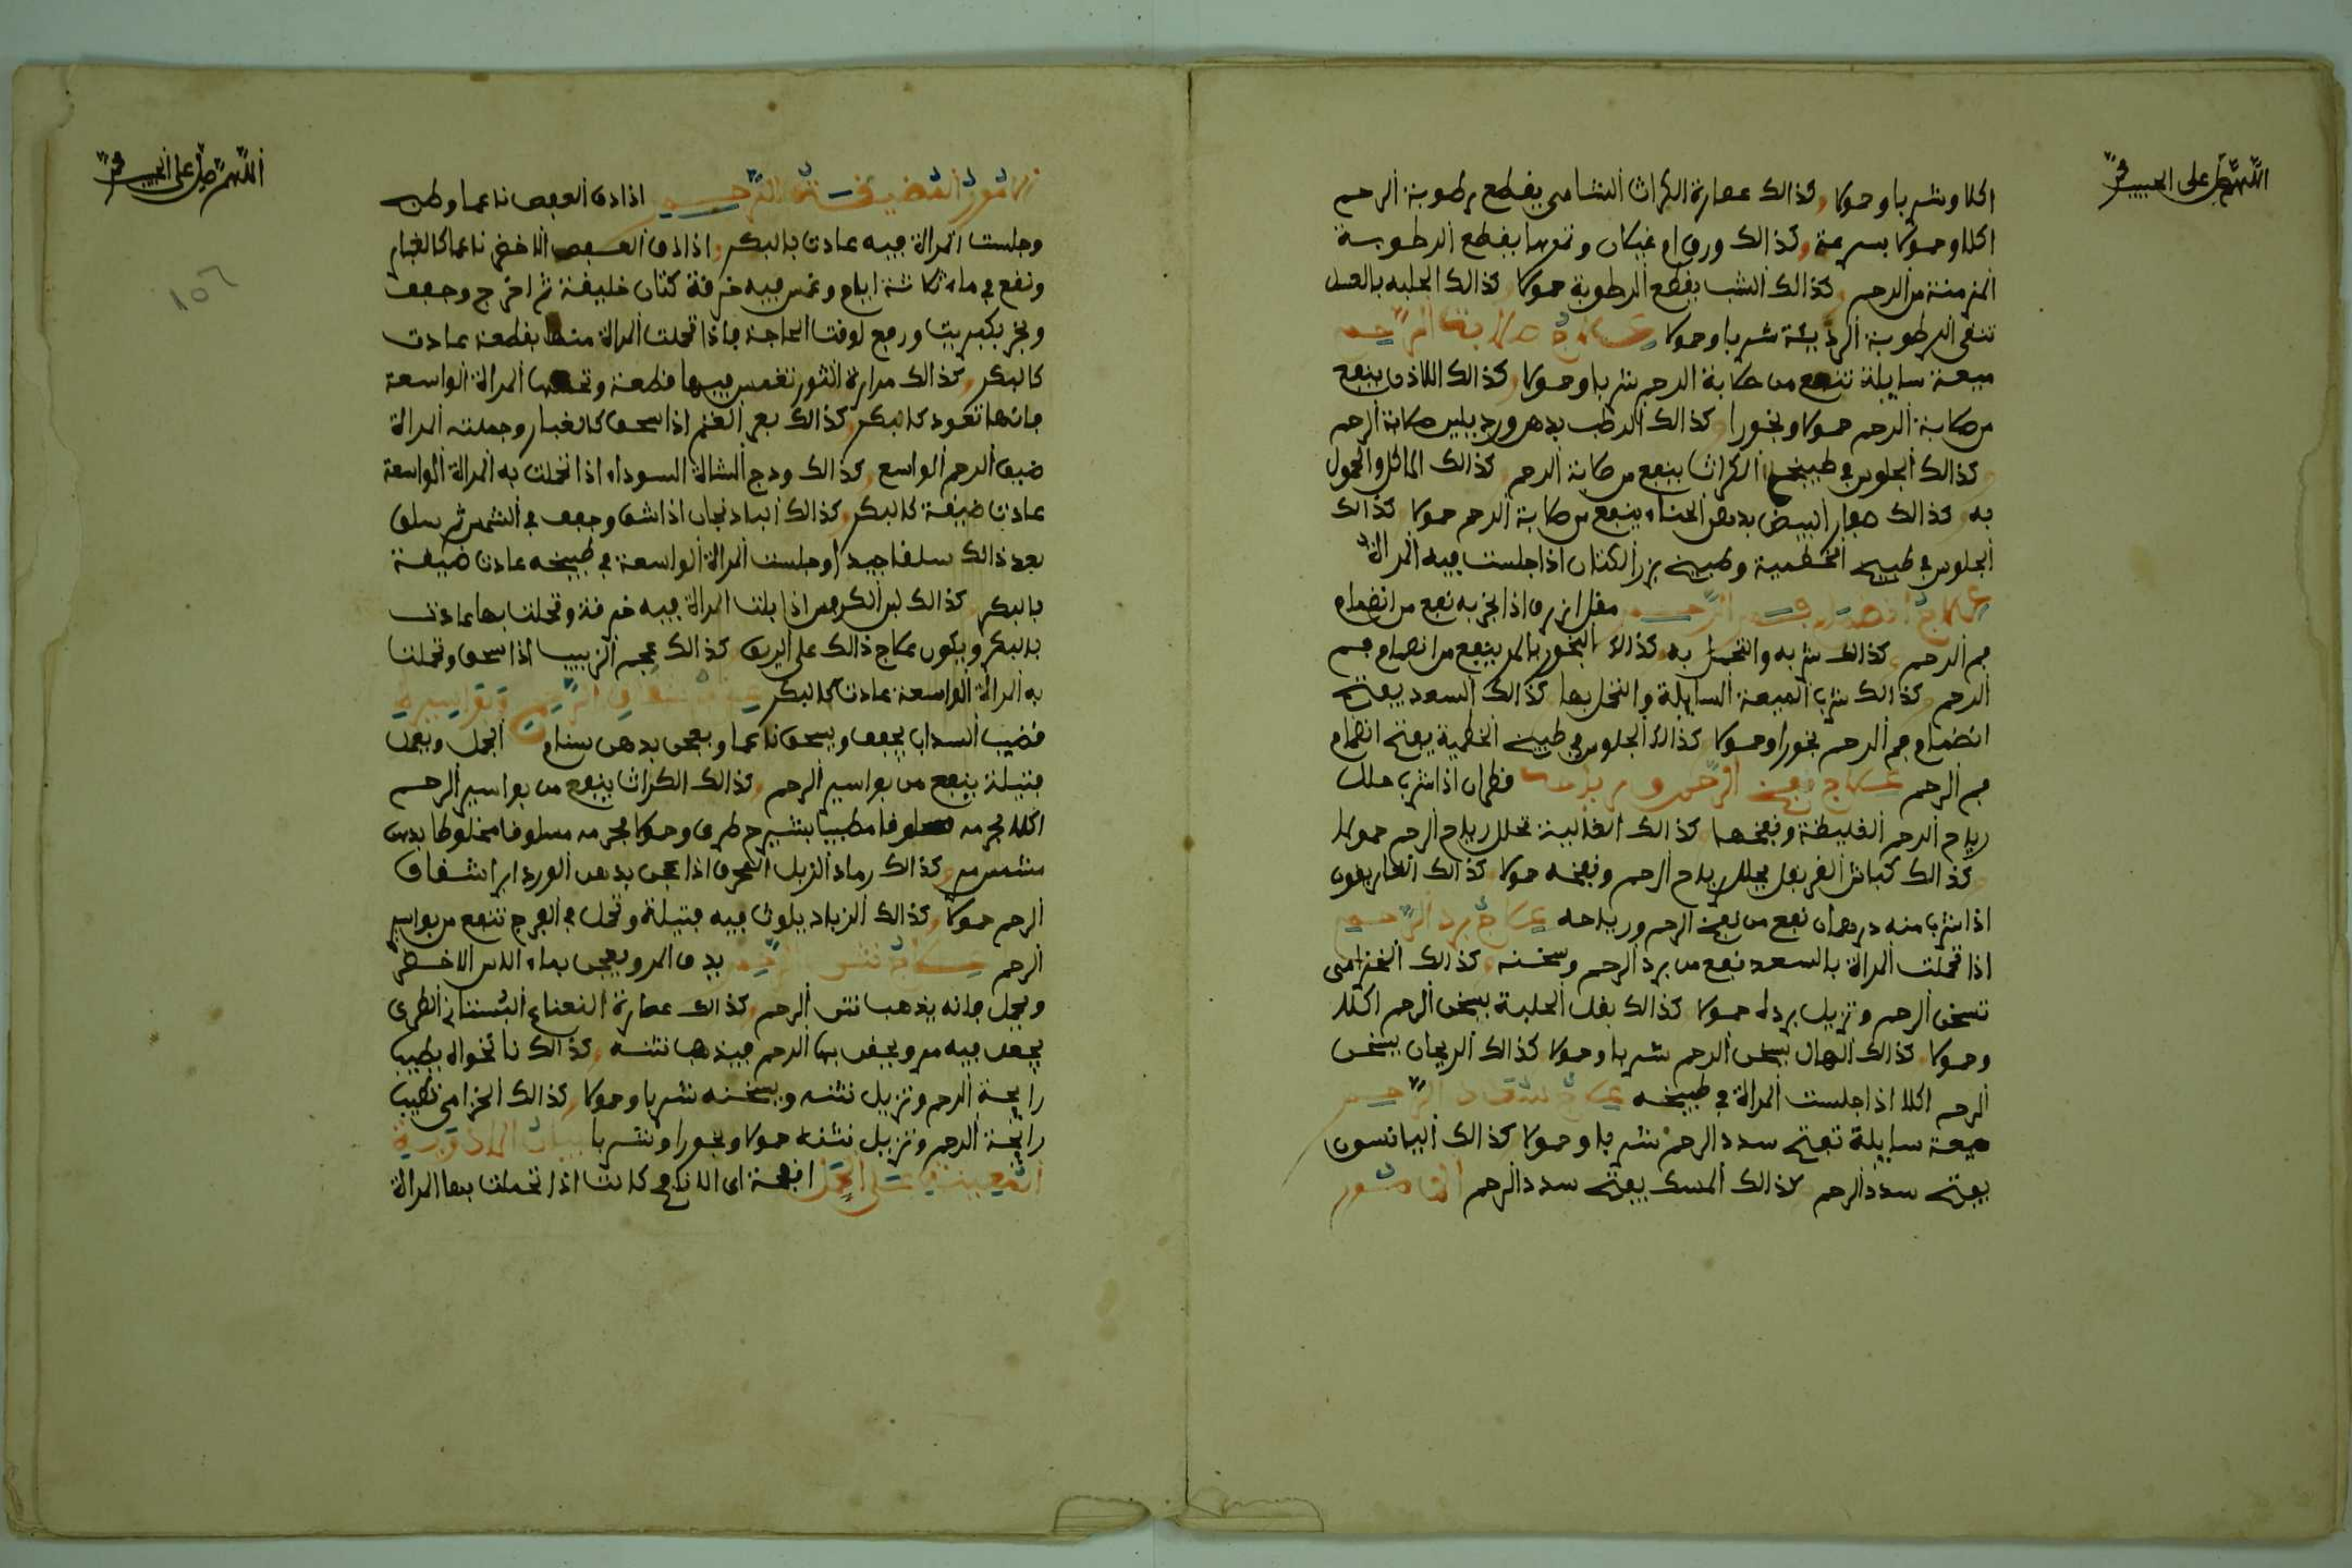 اللهم صل على الحبيب محمد
اكلا وشربا وحمولا وكذالك عصارة الكراث الشامي يقطع رطوبة الرحم
اكلا وحمولا بسرعة وكذالك ورق او وثمرها يقطع الرطوبة
المزمنة من الرحم وكذالك الشب يقطع الرطوبة حمولا كذالك الحلبه بالعسل
تنقى الرطوبة الرديئة شربا وحمولا علاج صلابة الرحم
ميعة سايلة تنفع من صلابة الرحم شربا وحمولا وكذالك اللاذن ينفع
من صلابة الرحم حمولا وبخورا وكذالك الرطب بدهن ورد يلين صلابة الرحم
وكذالك الجلوس في طبيخ الكراث ينفع من صلابة الرحم وكذالك الماكل والحمول
به وكذالك صفار البيض بدهن الحناء ينفع من صلابة الرحم حمولا كذالك
الجلوس في طبيخ الخطمية وطبيخ بزر الكتان اذا جلست فيه المراة
علاج انضمام فم الرحم مقل ازرق اذا بخر به نفع من انضمام
فم الرحم وكذالك شربه والتحمل به وكذالك البخور بالمر ينفع من انضمام فم
الرحم وكذالك شرب الميعة السايلة والتحمل بها كذالك السعد يفتح
انضمام فم الرحم بخورا وحمولا كذالك الجلوس في طبيخ الخطمية يفتح انضمام
فم الرحم علاج نفخ الرحم ورياحه قطران اذا شرب حلل
رياح الرحم الغليظة ونفخها كذالك الغالية تحلل رياح الرحم حمولا
وكذالك كباش القرنفل يحلل رياح الرحم ونفخه حمولا كذالك الغاريقون
اذا شرب منه درهمان نفع من نفخ الرحم ورياحه علاج برد الرحم
اذا تحملت المراة بالسعد نفع من برد الرحم وسخنه وكذالك الخزامى
تسخن الرحم وتزيل برده حمولا كذالك بقل الحلبة يسخن الرحم اكلا
وحمولا وكذالك الهال يسخن الرحم شربا وحمولا كذالك الريحان يسخن
الرحم اكلا اذا جلست المراة في طبيخه علاج سدد الرحم
ميعة سايلة تفتح سدد الرحم شربا وحمولا كذالك اليانسون
يفتح سدد الرحم كذالك المسك يفتح سدد الرحم الامور
اللهم صل على الحبيب محمد
١٥٦
الامور المضيقة الرحم اذا دق العفص ناعما وطبخ
وجلست المراة فيه عادت كالبكر اذا دق العفص الاخضر ناعما كالغبار
ونقع في ماء ثلاثة ايام وغمس فيه خرقة كتان خليقة ثم اخرج وجفف
وبخر بكبريت ورفع لوقت الحاجة فاذا تحملت المراة منها بقطعة عادت
كالبكر وكذالك مرارة الثور تغمس فيها قطعة وتحملها المراة الواسعة
فانها تعود كالبكر كذالك بعر الغنم اذا سحق كالغبار وحملته المراة
ضيق الرحم الواسع وكذالك ودج الشاة السوداء اذا تحملت به المراة الواسعة
عادت ضيقة كالبكر وكذالك الباذنجان اذا شق وجفف في الشمس ثم سلق
بعد ذالك سلقا جيدا وجلست المراة الواسعة في طبيخه عادت ضيقة
كالبكر كذالك لبن اذا بلت المراة فيه خرقة وتحملت بها عادت
كالبكر ويكون علاج ذالك على الريق كذالك عجم الزبيب اذا سحق وتحملت
به المراة الواسعة عادت كالبكر علاج شقاق الرحم وبواسيره
قضيب السداب يجفف ويسحق ناعما ويعجن بدهن سنام الجمل ويعمل
فتيلة ينفع من بواسير الرحم وكذالك الكراث ينفع من بواسير الرحم
اكلا بجرمه مسلوقا مطيبا بشيرج طرى وحمولا بجرمه مسلوقا مخلوطا بدهن
مشمش مر وكذالك رماد الزبل المحرق اذا عجن بدهن الورد ابرا شقاق
الرحم حمولا وكذالك الزباد يلوث فيه فتيلة وتحمل في الفرج تنفع من بواسير
الرحم علاج نتن الرحم يدق المر ويعجن بماء الاس الاخضر
ويحمل فانه يذهب نتن الرحم وكذالك عصارة النعناع البستاني الطرى
يجعل فيه مر ويحقن بها الرحم فيذهب نتنه وكذالك نانخواه يطيب
رايحة الرحم وتزيل نتنه ويسخنه شربا وحمولا وكذالك الخزامى تطيب
رايحة الرحم وتزيل نتنه حمولا وبخورا وشربا بيان الادوية
المعينة على الحمل انفحة اى الانافح كانت اذا تحملت بها المراة